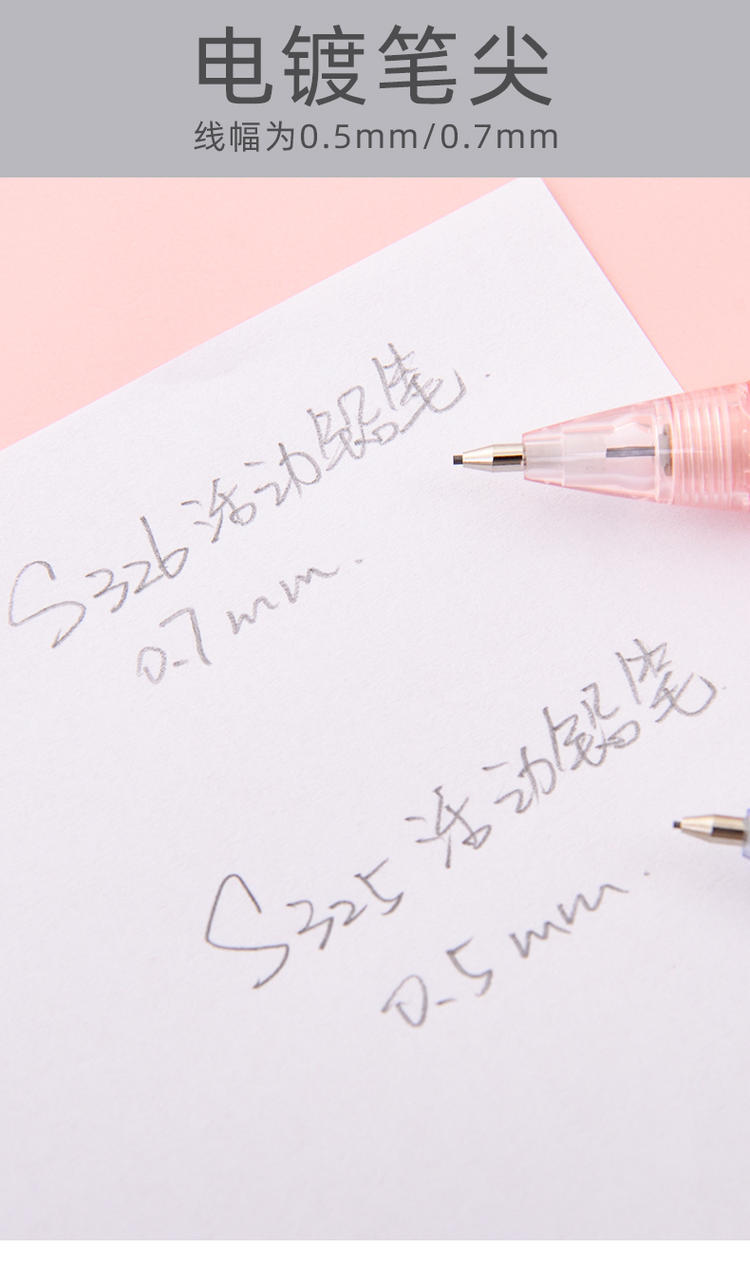 电镀笔尖
线幅为0.5mm/0.7mm
S326 活动铅笔.
0.7mm.
S325 活动铅笔.
0.5mm.